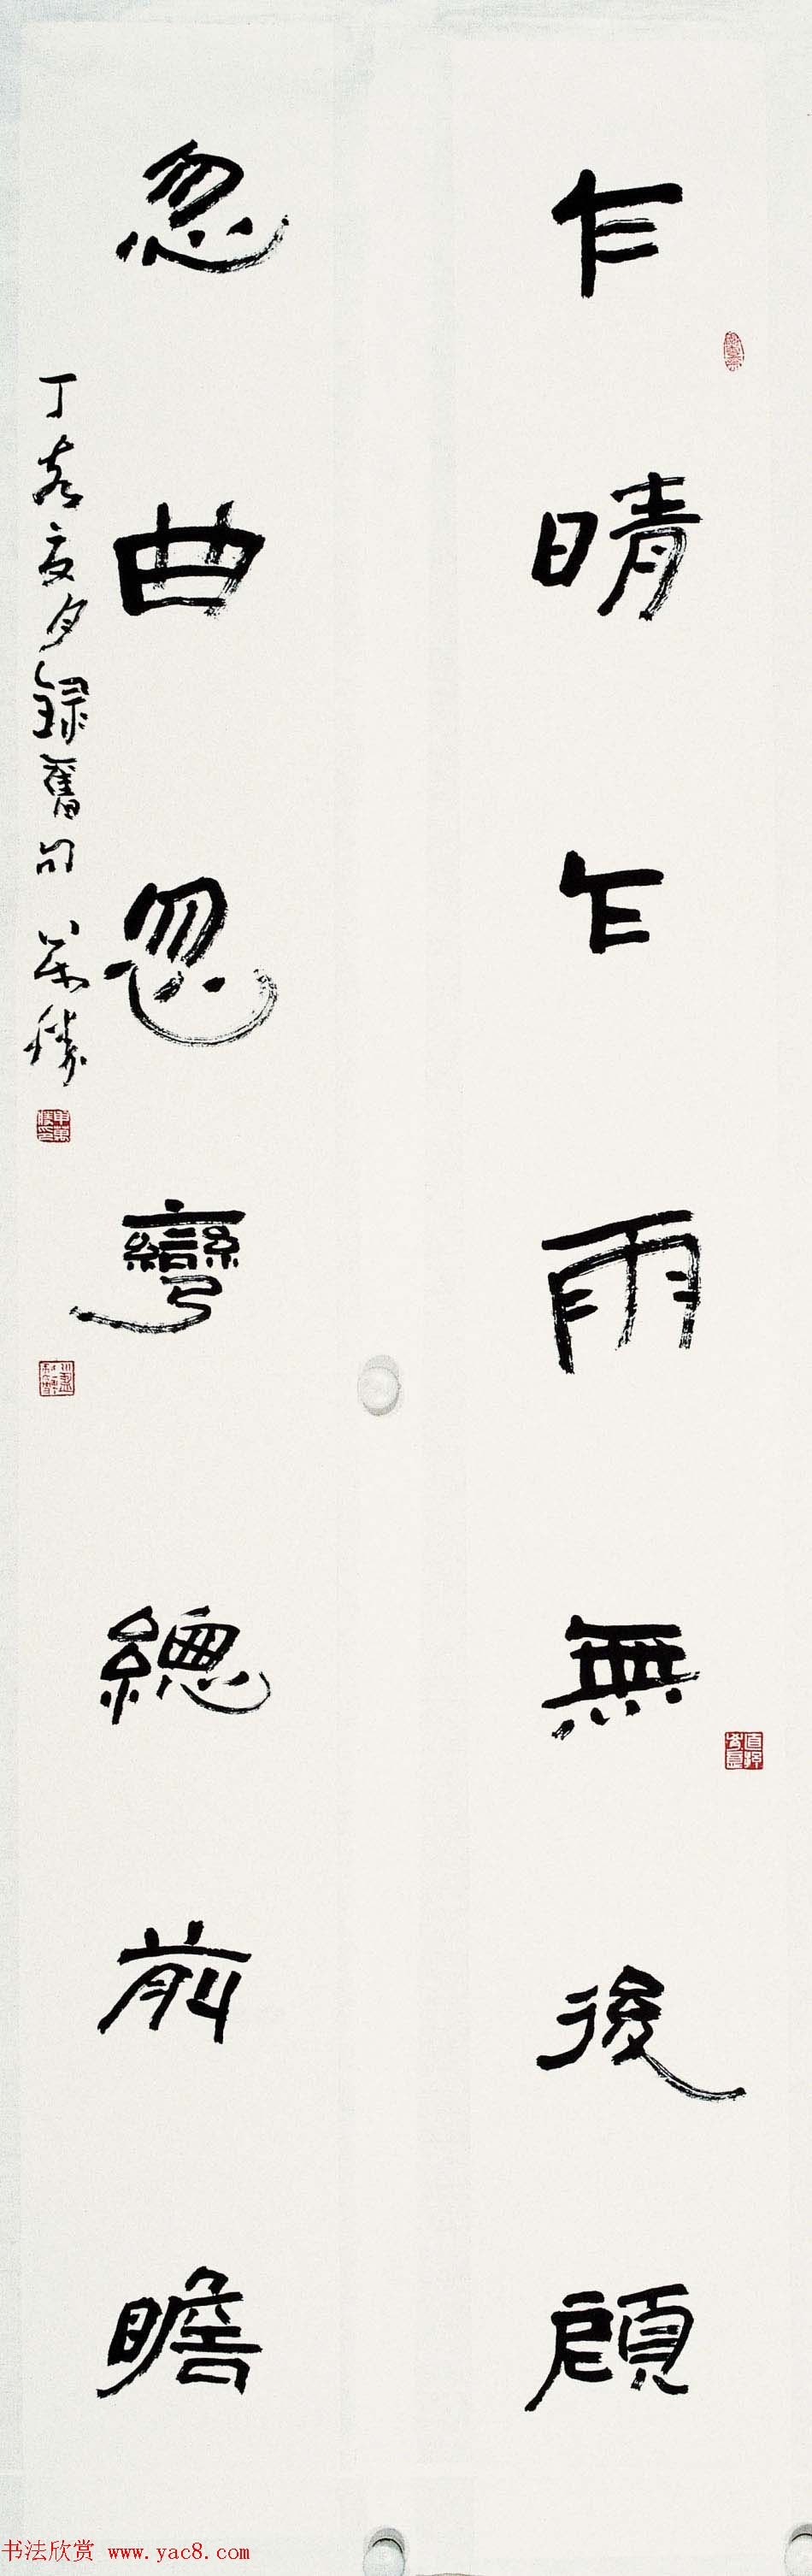 乍晴乍雨無後顧
忽曲忽彎總前瞻
丁亥夏月錄舊句 萬勝
申萬勝印
书法欣赏 www.yac8.com